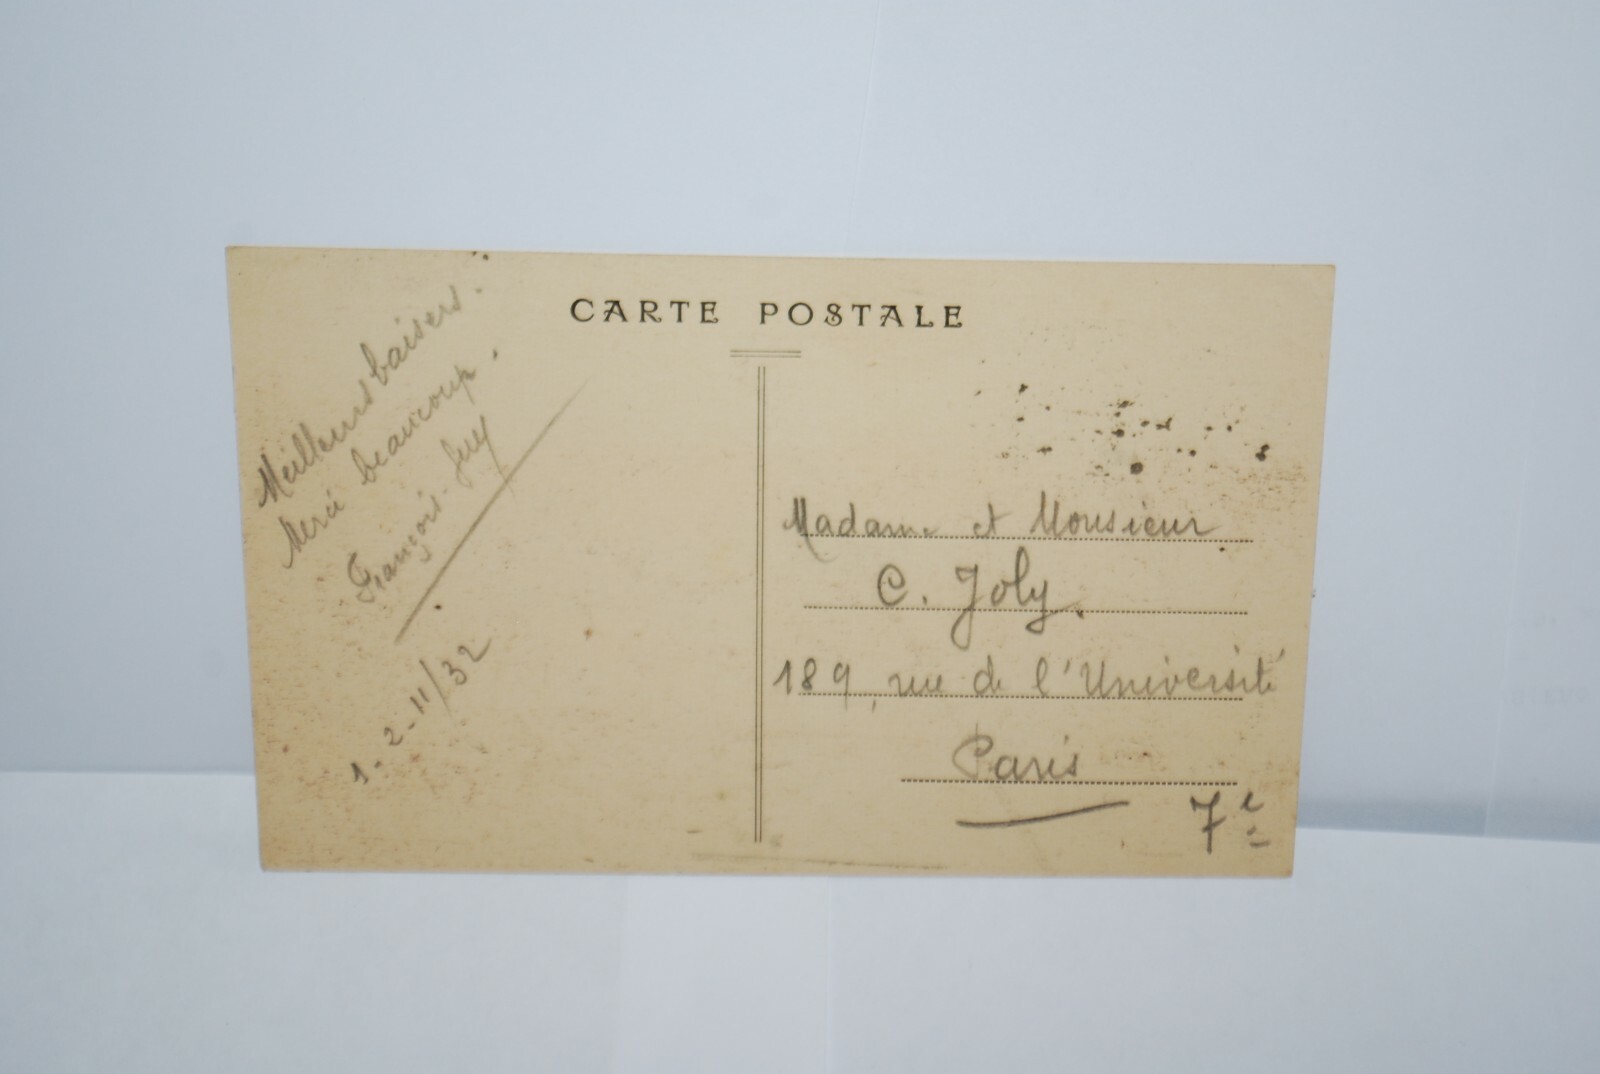 CARTE POSTALE
Meilleurs baisers.
Merci beaucoup.
François Guy
1-2-11/32
Madame et Monsieur
C. Joly.
189, rue de l'Université
Paris
7e